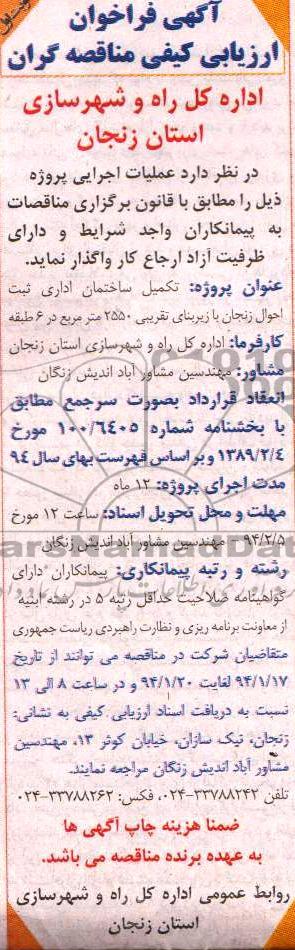 آگهی فراخوان
ارزیابی کیفی مناقصه گران
اداره کل راه و شهرسازی
استان زنجان
در نظر دارد عملیات اجرایی پروژه
ذیل را مطابق با قانون برگزاری مناقصات
به پیمانکاران واجد شرایط و دارای
ظرفیت آزاد ارجاع کار واگذار نماید.
عنوان پروژه: تکمیل ساختمان اداری ثبت
احوال زنجان با زیربنای تقریبی ۲۵۵۰ متر مربع در ۶ طبقه
کارفرما: اداره کل راه و شهرسازی استان زنجان
مشاور: مهندسین مشاور آباد اندیش زنگان
انعقاد قرارداد بصورت سرجمع مطابق
با بخشنامه شماره ۱۰۰/۶۴۰۵ مورخ
۱۳۸۹/۲/۴ و بر اساس فهرست بهای سال ۹۴
مدت اجرای پروژه: ۱۲ ماه
مهلت و محل تحویل اسناد: ساعت ۱۲ مورخ
۹۴/۲/۵ - مهندسین مشاور آباد اندیش زنگان
رشته و رتبه پیمانکاری: پیمانکاران دارای
گواهینامه صلاحیت حداقل رتبه ۵ در رشته ابنیه
از معاونت برنامه ریزی و نظارت راهبردی ریاست جمهوری
متقاضیان شرکت در مناقصه می توانند از تاریخ
۹۴/۱/۱۷ لغایت ۹۴/۱/۲۰ و در ساعت ۸ الی ۱۳
نسبت به دریافت اسناد ارزیابی کیفی به نشانی:
زنجان، نیک سازان، خیابان کوثر ۱۳، مهندسین
مشاور آباد اندیش زنگان مراجعه نمایند.
تلفن ۳۳۷۸۸۲۴۲-۰۲۴، فکس: ۳۳۷۸۸۲۶۲-۰۲۴
ضمنا هزینه چاپ آگهی ها
به عهده برنده مناقصه می باشد.
روابط عمومی اداره کل راه و شهرسازی
استان زنجان